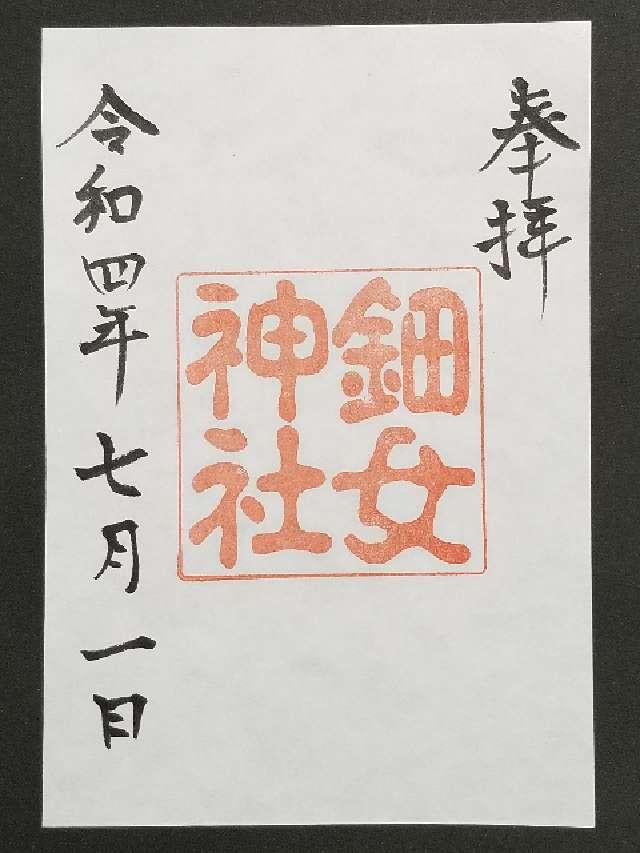 奉拝
鈿女
神社
令和四年七月一日